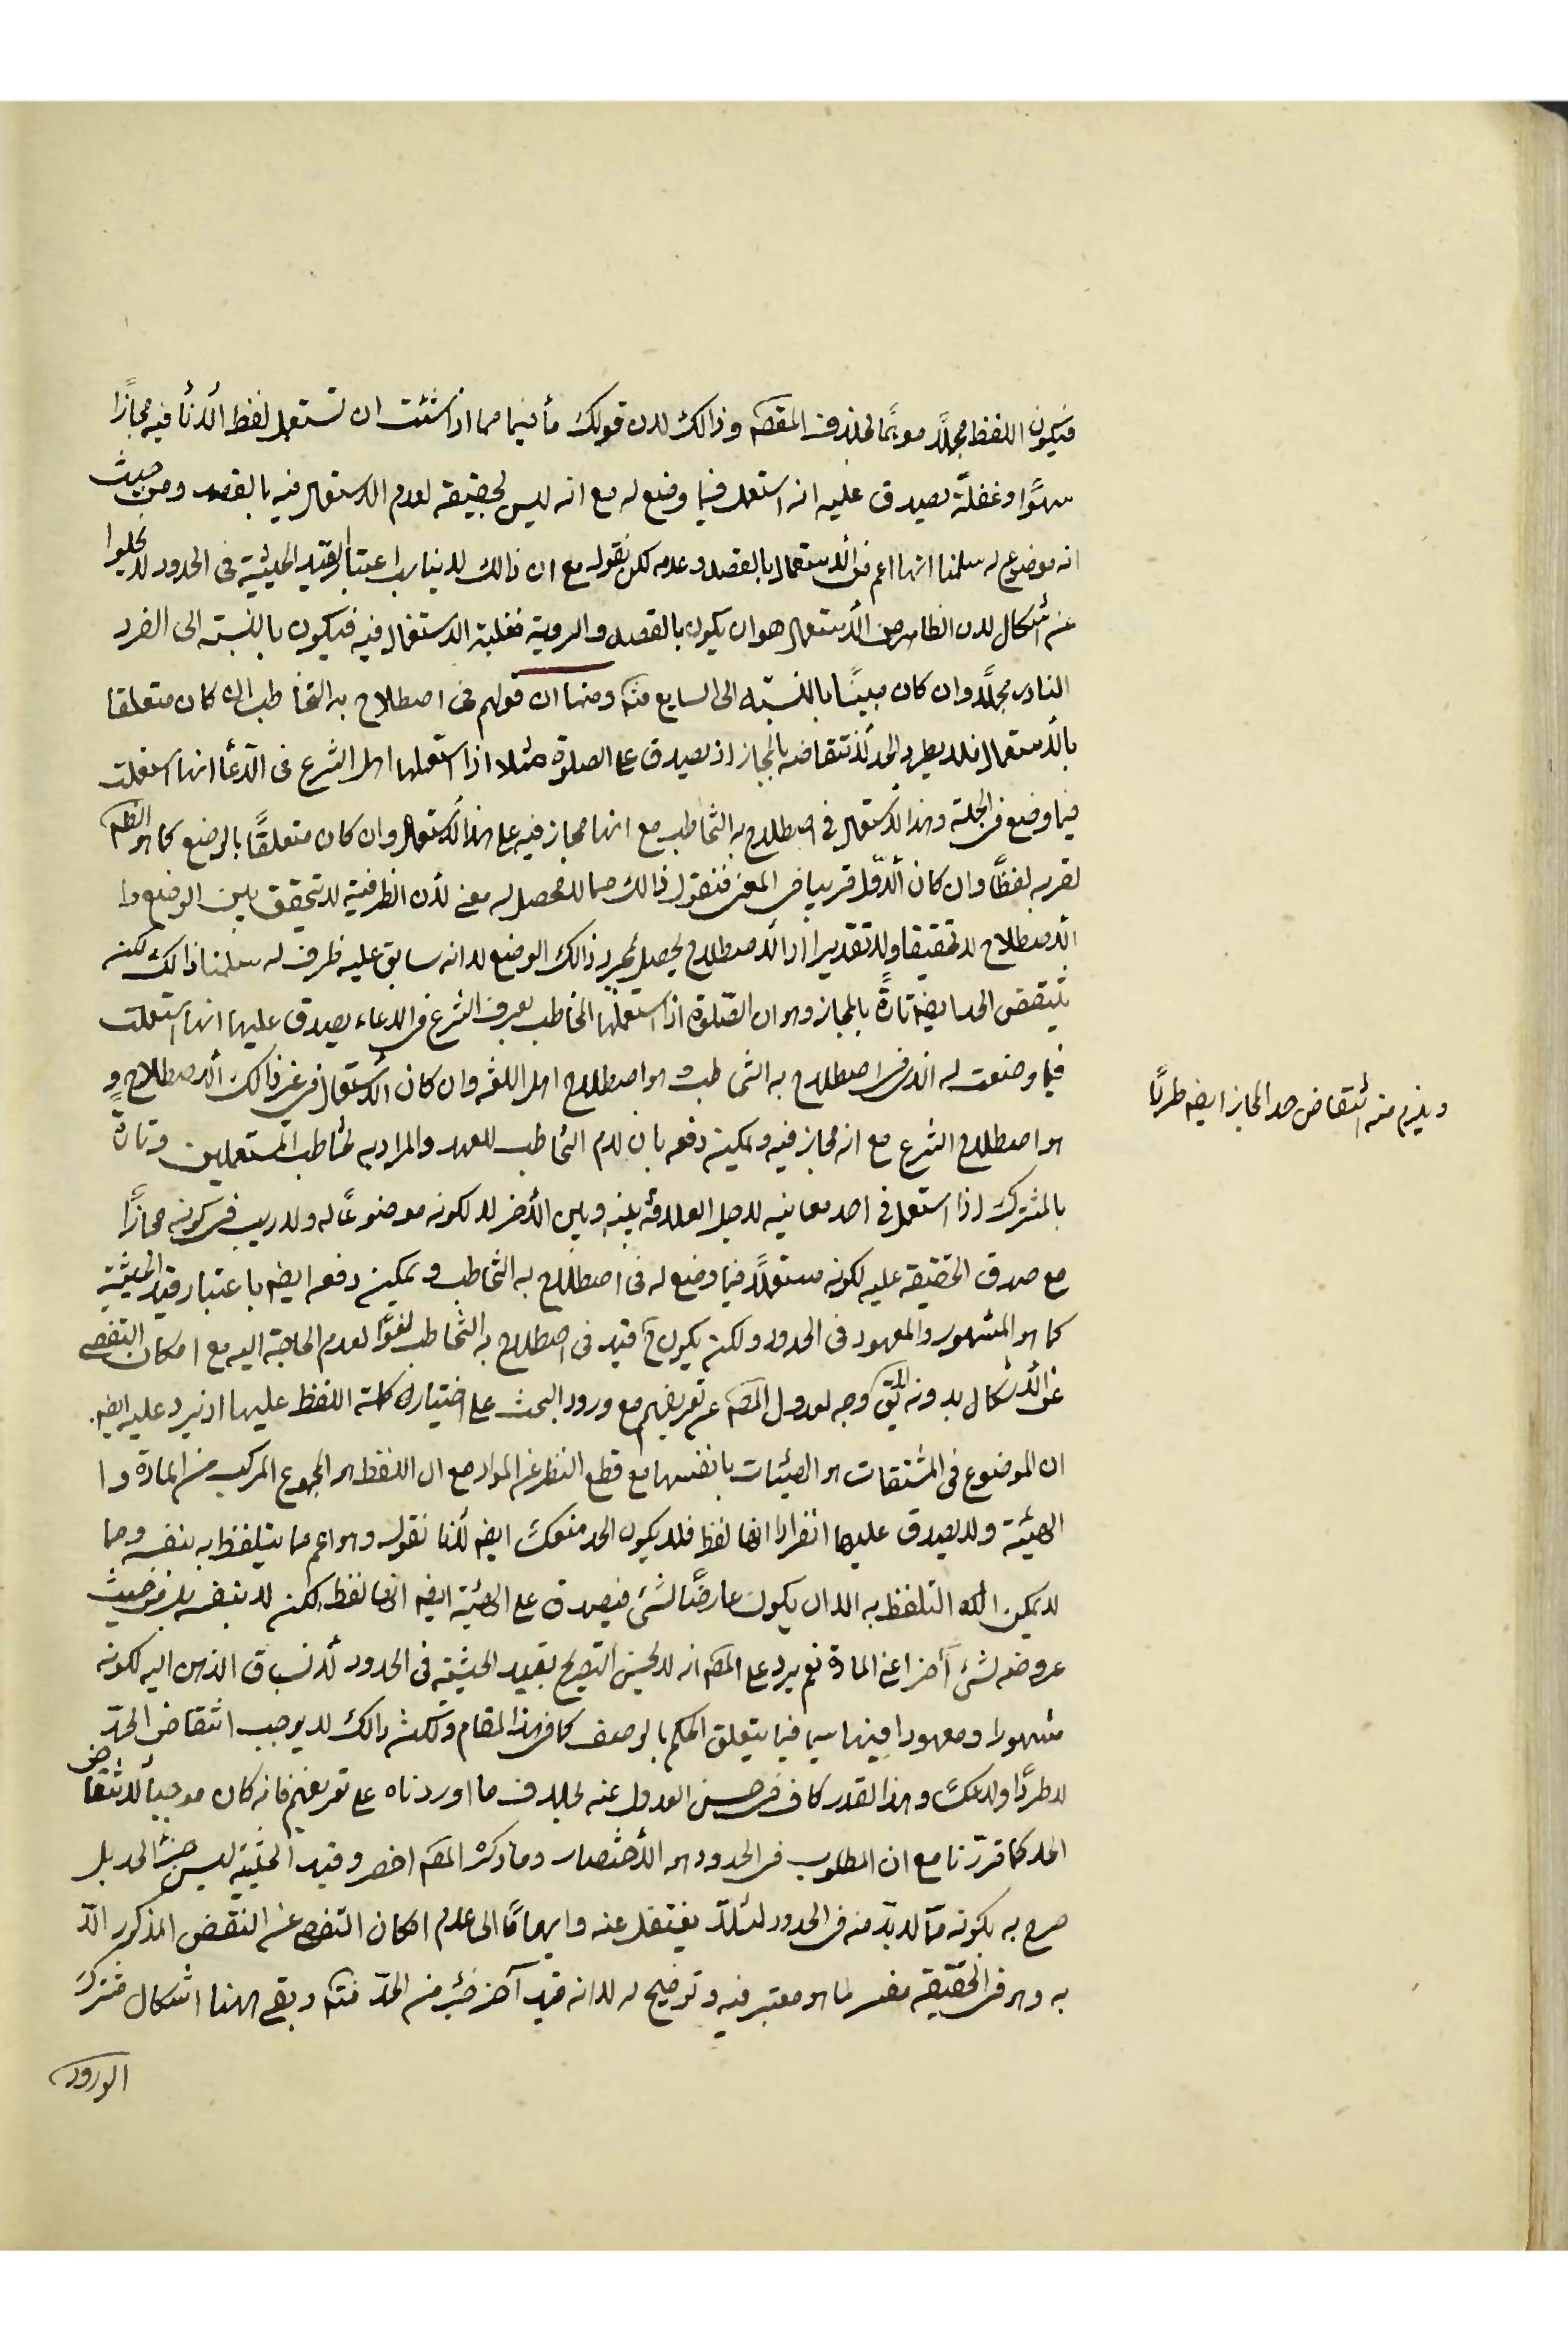 فيكون اللفظ مجملًا موهمًا لخلاف المقصود وذالك لان قولك مأ فيما مما اذا شئت ان تستعمل لفظ الأدنأ فيه مجازًا
سهوًا وغفلة يصدق عليه انه استعمل فيما وضع له مع انه ليس بحقيقة لعدم الاستعمال فيه بالقصد ومن حيث
انه موضوع له سلمنا انها اعم من الاستعمال بالقصد وعدمه لكن نقول مع ان ذالك لا يناسب اعتبار قيد الحيثية في الحدود لا يخلوا
عن اشكال لان الظاهر من الاستعمال هو ان يكون بالقصد والروية فغلبة الاستعمال فيه فيكون بالنسبة الى الفرد
النادر مجملًا وان كان مبينًا بالنسبة الى السايع منه ومنها ان قولهم في اصطلاح به التخاطب ان كان متعلقا
بالأستعمال فلا يطرد الحد لأنتقاضه بالمجاز اذ يصدق على الصلوة مثلا اذا استعملها اهل الشرع في الدعأ انها استعملت
فيما وضع في الجملة وهذا الاستعمال في اصطلاح به التخاطب مع انها مجاز فيه على هذا الاستعمال وان كان متعلقًا بالوضع كما هو الظم
لقربه لفظًا وان كان الأول قريبا في المعنى فنقول ذالك مما لا محصل له معنى لأن الظرفية لا تتحقق بين الوضع وا
الأصطلاح لا تحقيقا ولا تقديرا اذ الأصطلاح يحصل بمجرد ذالك الوضع لا انه سابق عليه ظرف له سلمنا ذالك لكنه
ينتقض الحد ايضه تارةً بالمجاز وهو ان الصلوة اذا استعملها المخاطب بعرف الشرع في الدعاء يصدق عليها انها استعملت
فيما وضعت له الذ في اصطلاح به التخاطب وهو اصطلاح اهل اللغه وان كان الاستعمال في غير ذالك الأصطلاح و
هو اصطلاح الشرع مع انه مجاز فيه ويمكن دفعه بان لام التخاطب للعهد والمراد به تخاطب المستعملين وتارةً
بالمشترك اذا استعمل في احد معانيه لاجل العلاقة بينه وبين الأخر لا لكونه موضوعًا له ولا ريب في كونه مجازًا
مع صدق الحقيقه عليه لكونه مستعملًا فيما وضع له في اصطلاح به التخاطب ويمكن دفعه ايضه باعتبار قيد الحيثية
كما هو المشهور والمعهود في الحدود ولكن يكون ح قيد في اصطلاح به التخاطب لغوًا لعدم الحاجة اليه مع امكان التفصى
عن الأشكال بدونه وجه لعدول المصم عن تعريفهم مع ورود البحث على اختيارك كلمة اللفظ عليها اذ يرد عليه ايضه
ان الموضوع في المشتقات هو الهيئات بانفسها مع قطع النظر عن المواد مع ان اللفظ هو المجموع المركب من المادة وا
الهيئة ولا يصدق عليها انفرادا انها لفظ فلا يكون الحد منعكسًا ايضه لأنا نقول وهو اعم مما يتلفظ به بنفسه ومما
لا يمكن التلفظ به الا ان يكون عارضًا لشئ فيصدق على الهيئة ايضه انها لفظ لكن لا بنفسه بل من حيث
عروضه لشئ آخر اعني المادة نعم يرد على المصم انه لا يحسن التصريح بقيد الحيثية في الحدود لأنسباق الذهن اليه لكونه
مشهورا ومعهودا فيها سيما فيما يتعلق الحكم بالوصف كما في هذا المقام ولكن ذالك لا يوجب انتقاض الحدّ
لا طردًا ولا عكسًا وهذا القدر كاف في حسن العدول عنه بخلاف ما اوردناه على تعريفهم فانه كان موجبًا لأنتقاض
الحد كما قررنا مع ان المطلوب في الحدود هو الأختصار وما ذكره المصم اخصر وقيد الحيثية ليس جزءًا للحد بل
صرح به بكونه مما لا بدّ منه في الحدود لئلا يغتفل عنه وايهامًا الى عدم امكان التفصى عن النقض المذكور الّا
به وهو في الحقيقه مفسر لما هو معتبر فيه وتوضيح له لا انه قيد آخر جزء من الحدّ فتم وبقى ههنا اشكال مشترك
الورود
ويلزم منه انتقاض حد المجاز ايضه طردًا